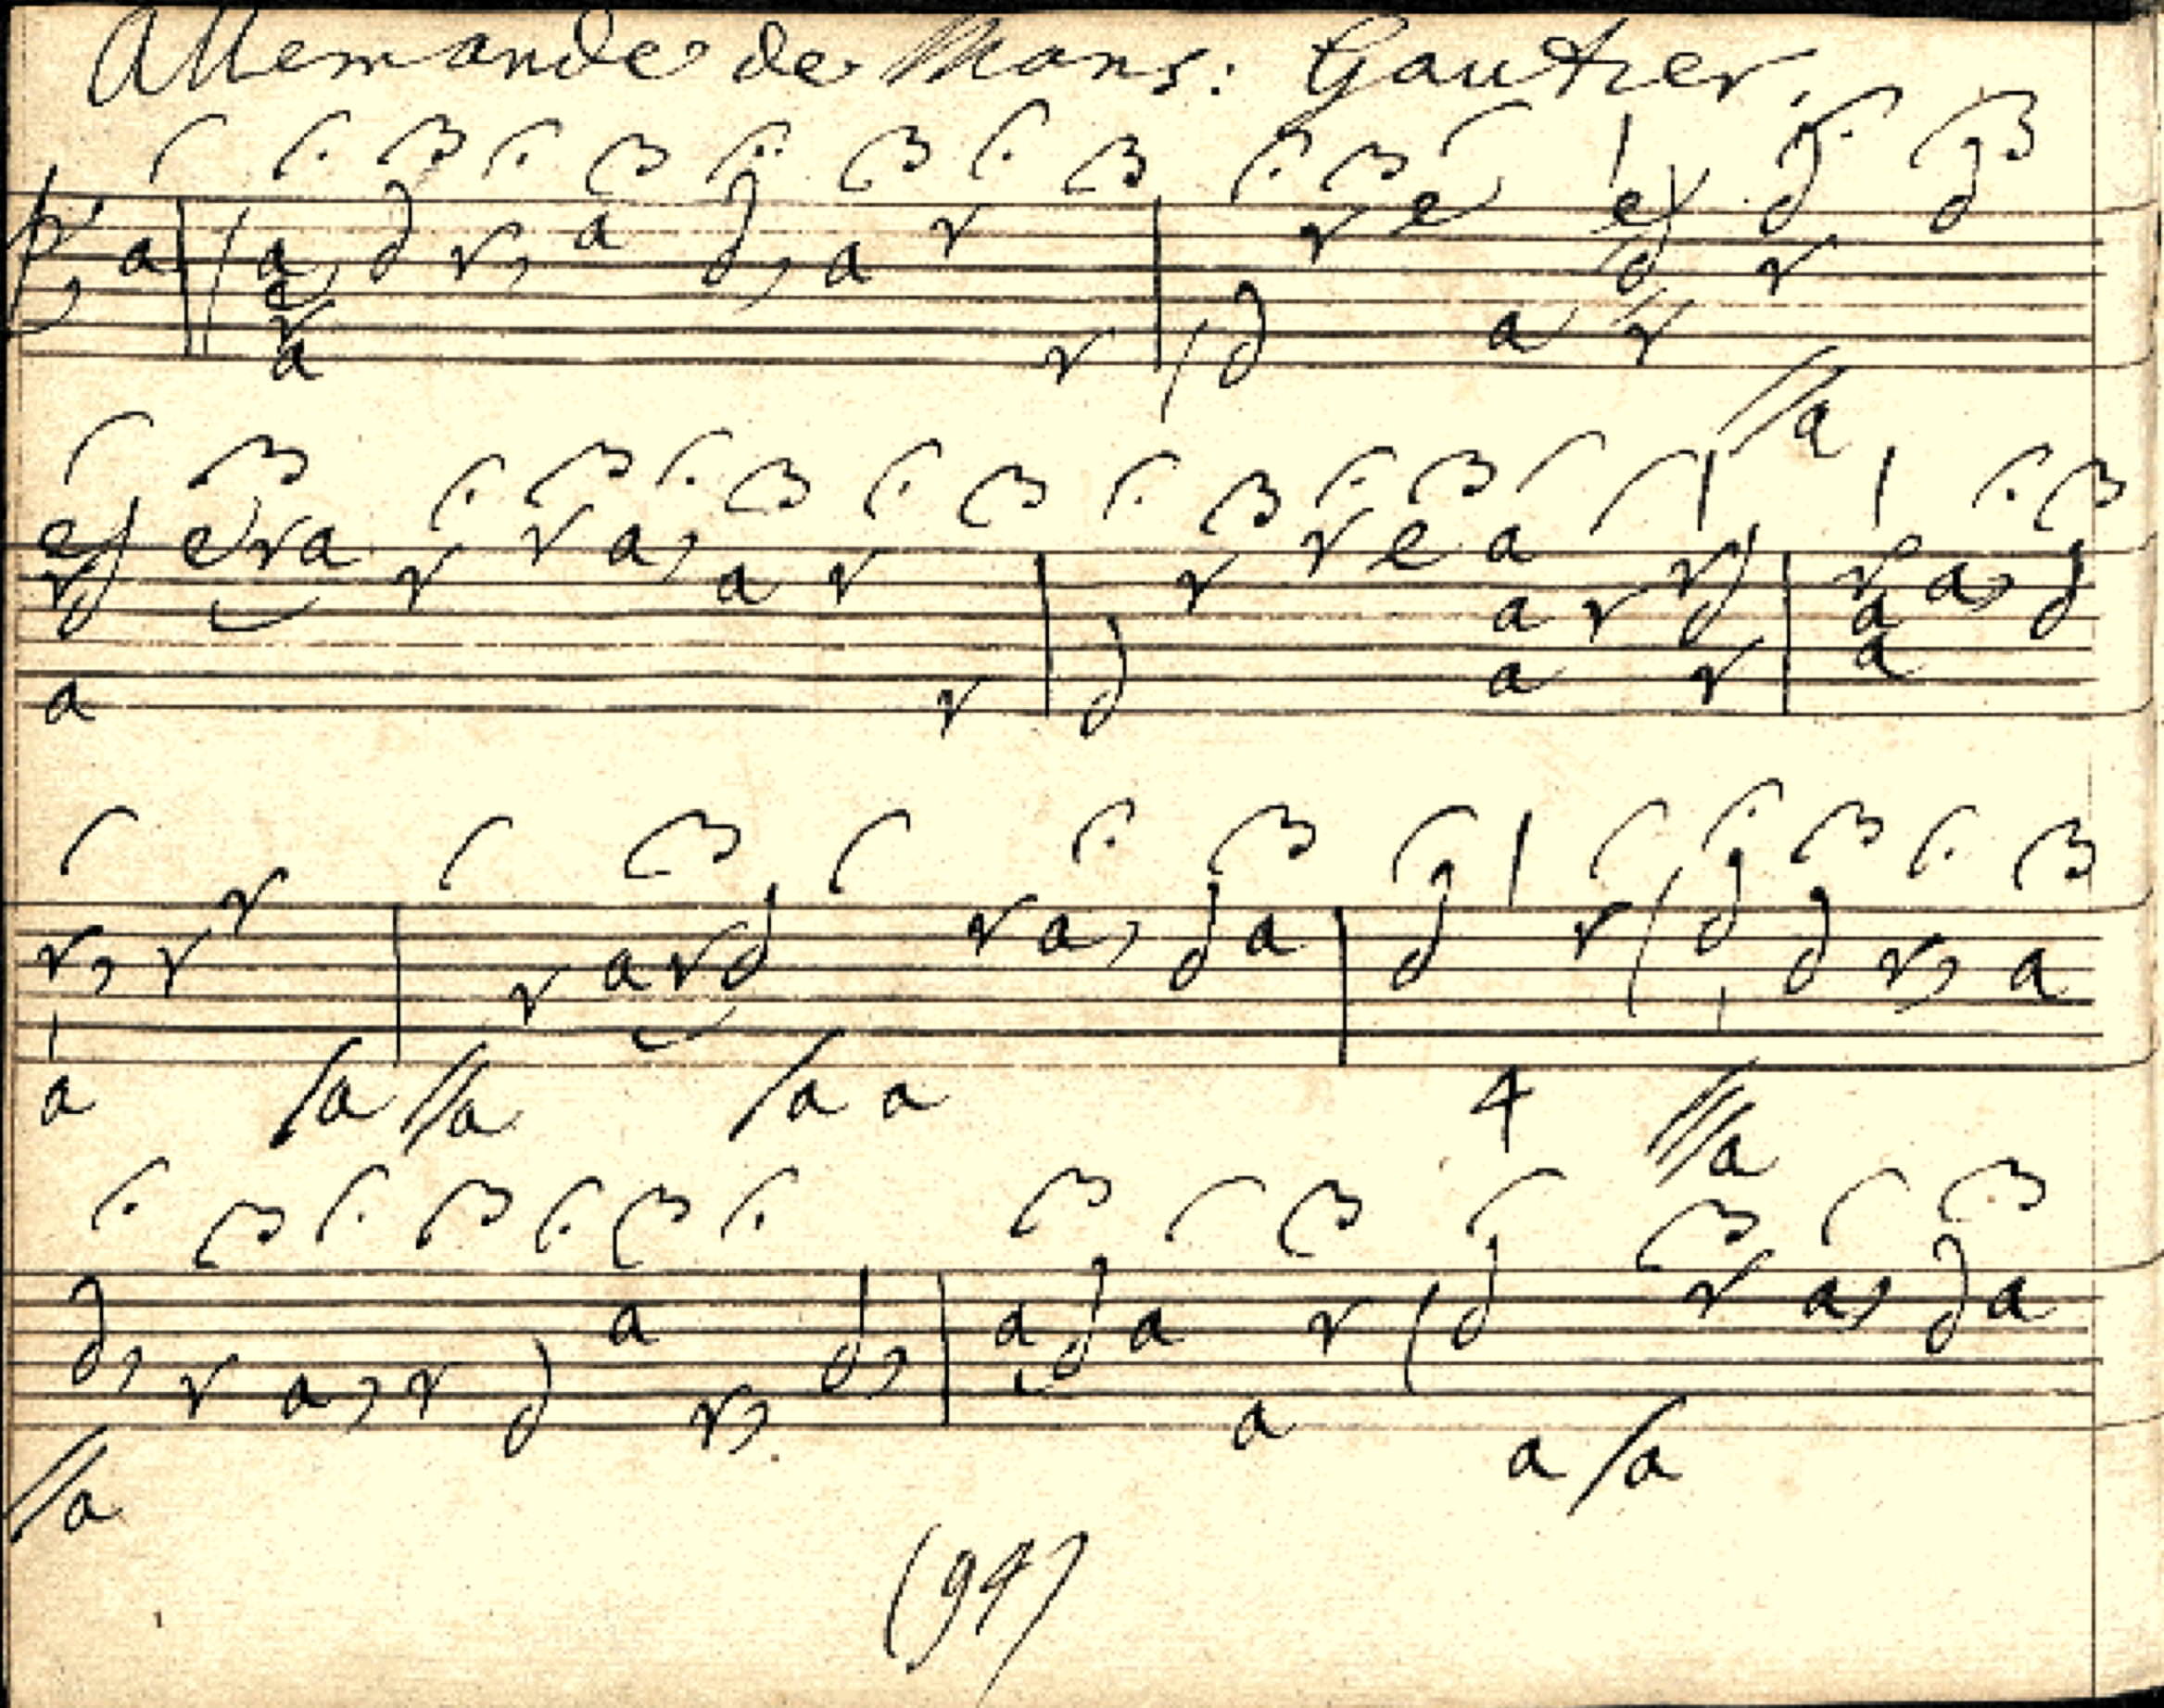 Allemande de Mons: Gautier.
a a d r, a d, a r r e e d d
e
r
a r d a r r
//a
e e r a r r a, a r r r e a r e a, d
r d a r d a
a r d a r a
r, r r r a r d r a, d a d r d d r, a
a /a //a /a a 4 ///a
d, r a, r d a r, d, a d a r d r a, d a
a
//a a /a
(94)